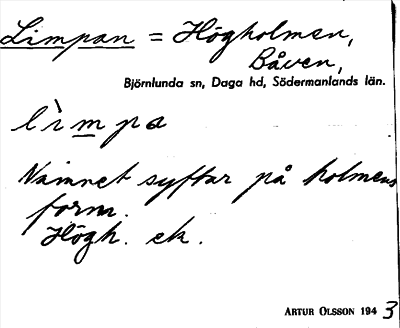 Limpan = Högholmen,
Båven,
Björnlunda sn, Daga hd, Södermanlands län.
lìmpa
Namnet syftar på holmens
form.
Högh. ek.
ARTUR OLSSON 1943